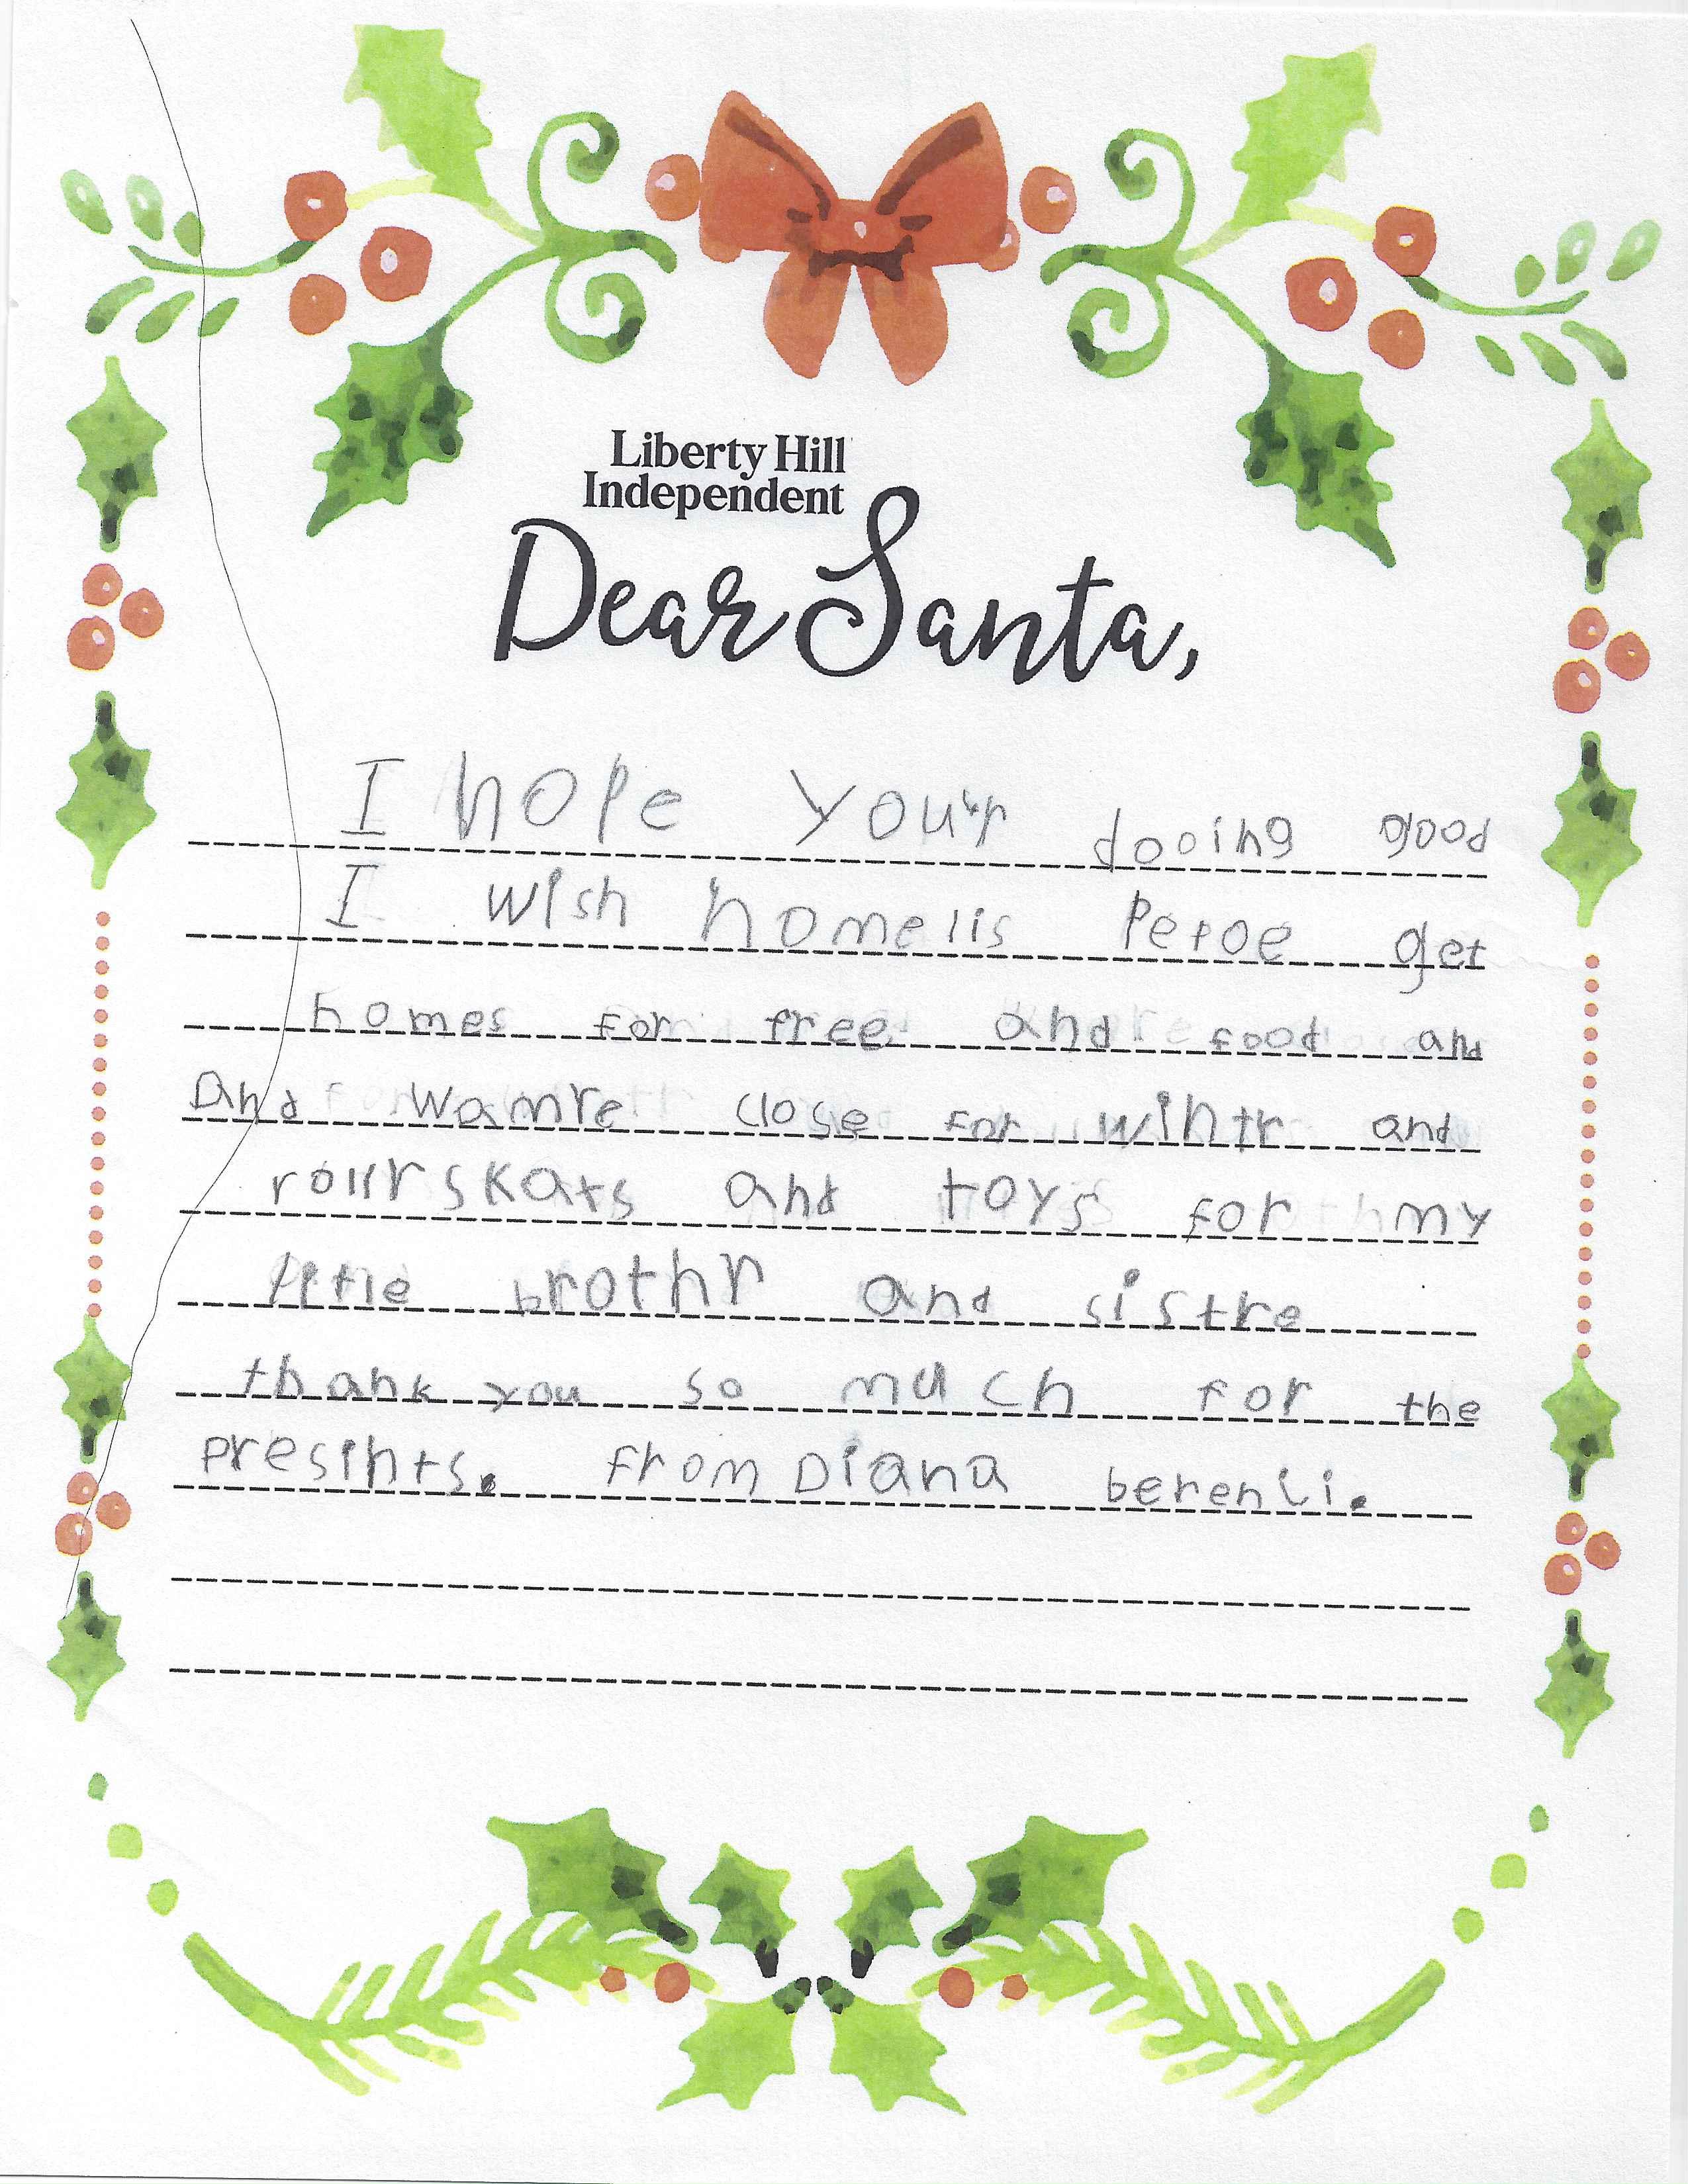 Liberty Hill
Independent
Dear Santa,
I hope your dooing good
I wish homelis Peroe get
homes for free and food and
And wamre close for wintr and
rollrskats and toys for my
litle brothr and sistre
thank you so much for the
presints. from Diana berenli.